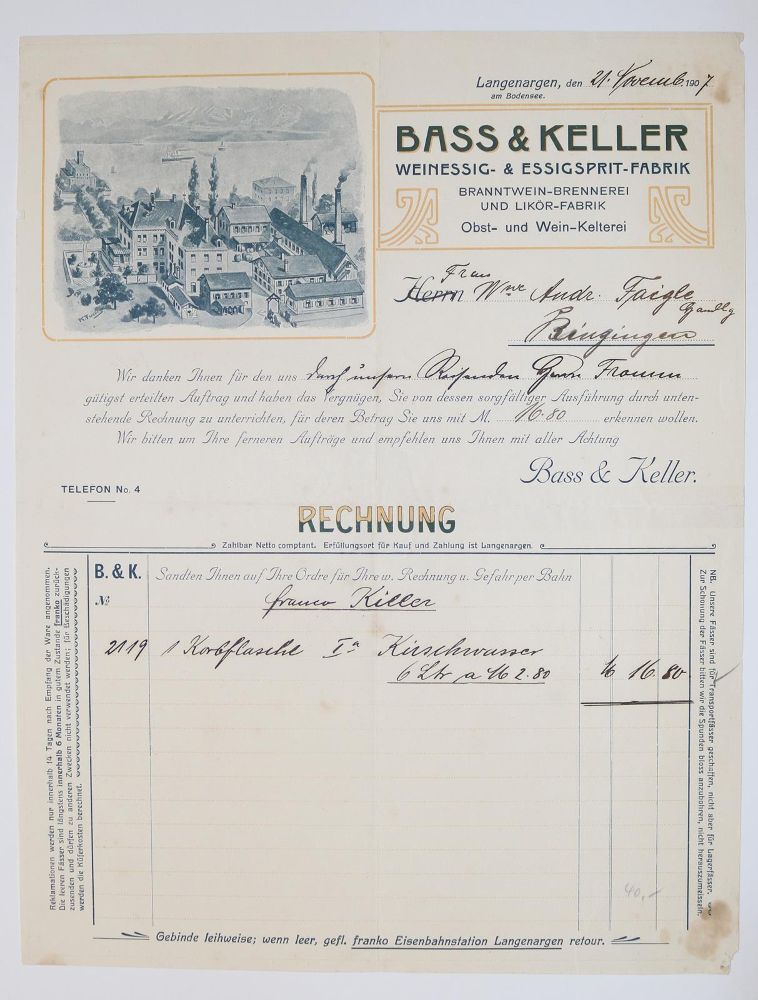 Langenargen, den 21. Novemb. 1907
am Bodensee.
BASS & KELLER
WEINESSIG- & ESSIGSPRIT-FABRIK
BRANNTWEIN-BRENNEREI
UND LIKÖR-FABRIK
Obst- und Wein-Kelterei
Frau
Herrn Wwe Andr. Faigle
Handlg
Bingingen
Wir danken Ihnen für den uns durch unsern Reisenden Herrn Fromm
gütigst erteilten Auftrag und haben das Vergnügen, Sie von dessen sorgfältiger Ausführung durch unten-
stehende Rechnung zu unterrichten, für deren Betrag Sie uns mit M. 16.80 erkennen wollen.
Wir bitten um Ihre ferneren Aufträge und empfehlen uns Ihnen mit aller Achtung
Bass & Keller.
TELEFON No. 4
RECHNUNG
Zahlbar Netto comptant. Erfüllungsort für Kauf und Zahlung ist Langenargen.
B. & K. Sandten Ihnen auf Ihre Ordre für Ihre w. Rechnung u. Gefahr per Bahn
№ franco Killer
2119 1 Korbflasche Ia Kirschwasser
6 Ltr a M 2.80 M 16.80
40,-
Reklamationen werden nur innerhalb 14 Tagen nach Empfang der Ware angenommen.
Die leeren Fässer sind längstens innerhalb 6 Monaten in gutem Zustande franko zurück-
zusenden und dürfen zu anderen Zwecken nicht verwendet werden; für Beschädigungen
werden die Küferkosten berechnet.
NB. Unsere Fässer sind für Transportfässer geschaffen, nicht aber für Lagerfässer.
Zur Schonung der Fässer bitten wir die Spunden bloss anzubohren, nicht herauszumeisseln.
Gebinde leihweise; wenn leer, gefl. franko Eisenbahnstation Langenargen retour.